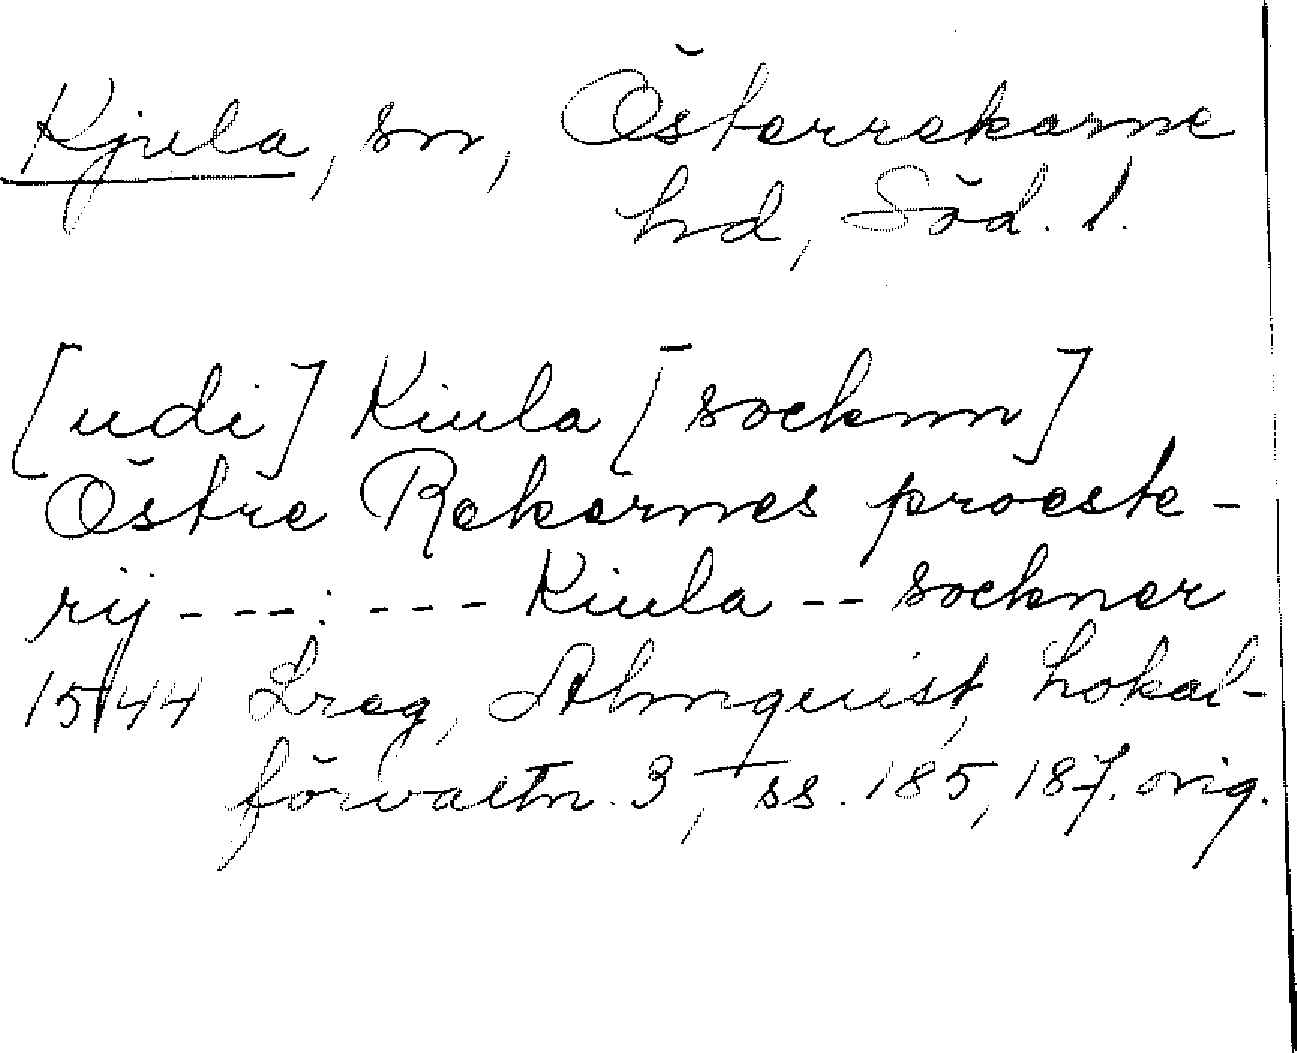 Kjula, sn, Österrekarne
hd, Söd. l.
[udi] Kiula [socknn]
Östre Rekarnes proeste-
rij ---:--- Kiula -- sockner
1544 Lreg, Almquist, Lokal-
förvaltn. 3, ss. 185, 187. orig.